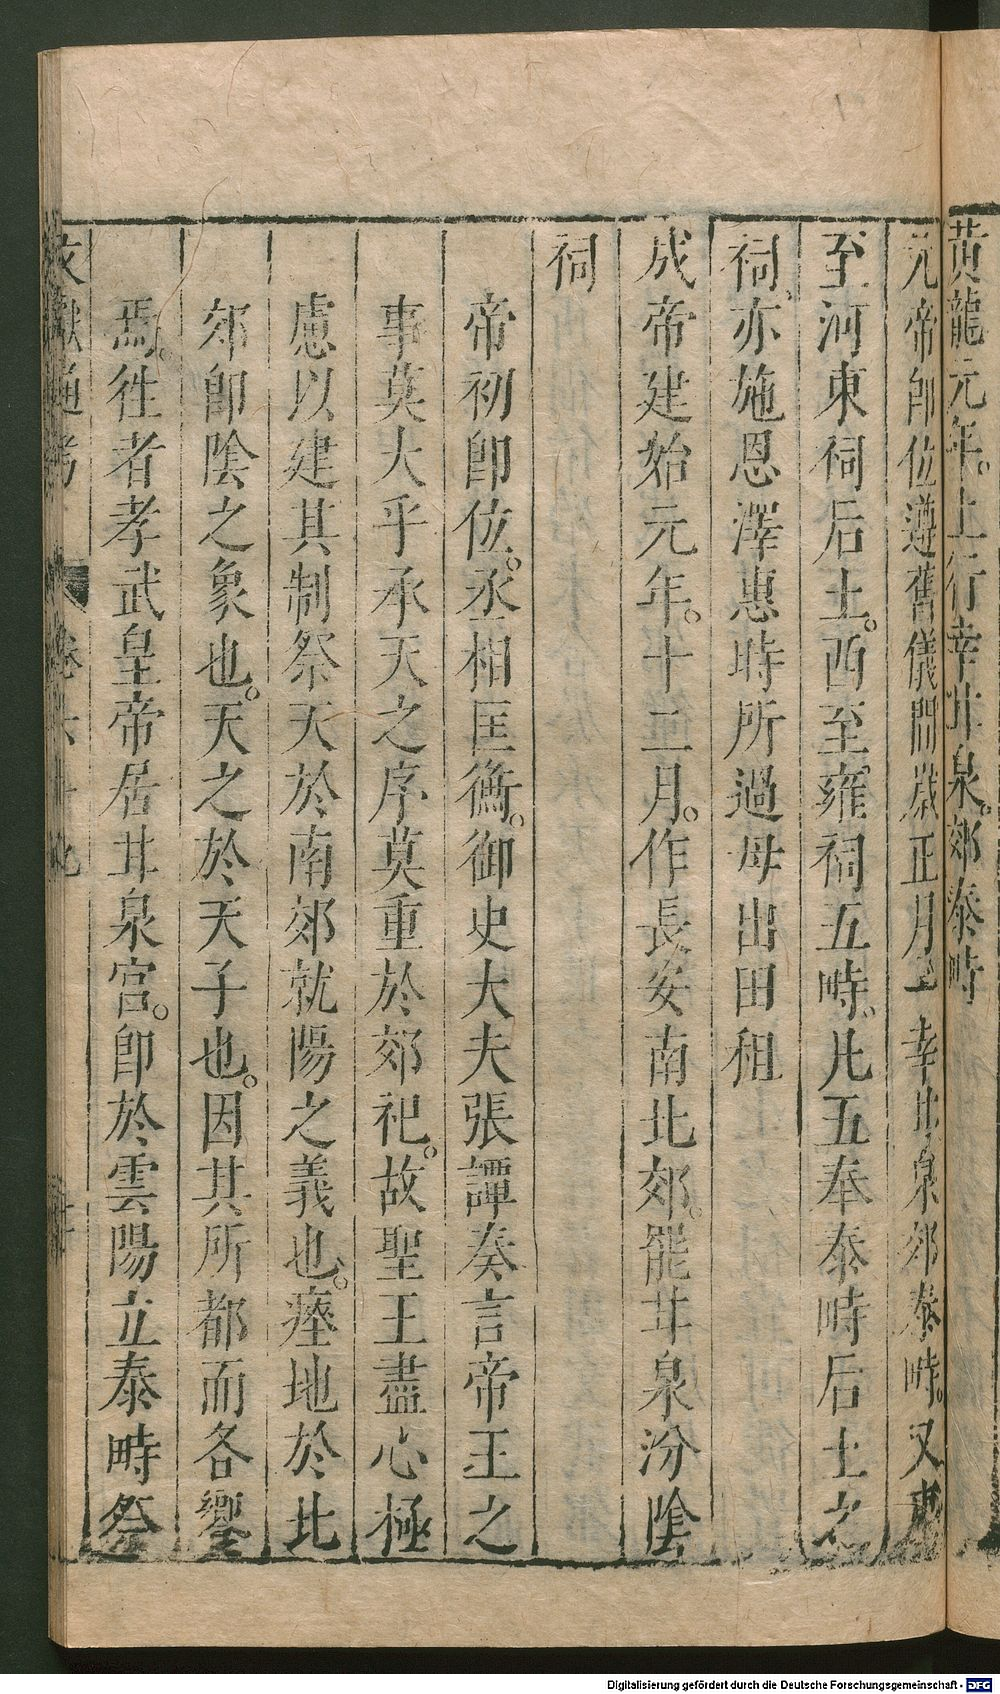 黄龍元年。上行幸甘泉。郊泰畤
元帝即位遵舊儀間歲正月上幸甘泉郊泰畤。又東
至河東祠后土。西至雍祠五畤。凡五奉泰畤后土之
祠、亦施恩澤惠時所過毋出田租
成帝建始元年。十二月。作長安南北郊。罷甘泉汾隂
祠
帝初即位。丞相匡衡。御史大夫張譚奏言帝王之
事莫大乎承天之序莫重於郊祀。故聖王盡心極
慮以建其制祭天於南郊就陽之義也。瘞地於北
郊即隂之象也。天之於天子也。因其所都而各饗
焉。徃者孝武皇帝居甘泉宫。即於雲陽立泰畤祭
文獻通考 卷六十九
Digitalisierung gefördert durch die Deutsche Forschungsgemeinschaft - DFG